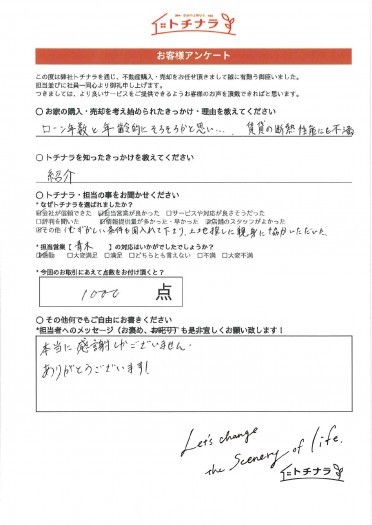 トチナラ
お客様アンケート
この度は弊社トチナラを通じ、不動産購入・売却をお任せ頂きまして誠に有難う御座いました。
担当並びに社員一同心より御礼申し上げます。
つきましては、より良いサービスをご提供できるようお客様のお声を頂戴できればと思います。
○ お家の購入・売却を考え始められたきっかけ・理由を教えてください
ローン年数と年齢的にそろそろかと思い…、賃貸の断熱性能にも不満
○ トチナラを知ったきっかけを教えてください
紹介
○ トチナラ・担当の事をお聞かせください
* なぜトチナラを選ばれましたか?
会社が信頼できた 担当営業が良かった □サービスや対応が良さそうだった
□評判を聞いた 情報提供量が多かった・早かった 店舗のスタッフがよかった
その他(むずかしい条件を聞入れて下さり、土地探しに親身に協力いただいた
* 担当営業【 青木 】の対応はいかがでしたでしょうか?
感動 □大変満足 □満足 □どちらとも言えない □不満 □大変不満
* 今回のお取引にあえて点数をお付け頂くと?
1000 点
○ その他何でもご自由にお書きください
*担当者へのメッセージ(お褒め、お叱り)も是非宜しくお願い致します!
本当に感謝しかございません。
ありがとうございます!
Let's change
the Scenery of life.
トチナラ